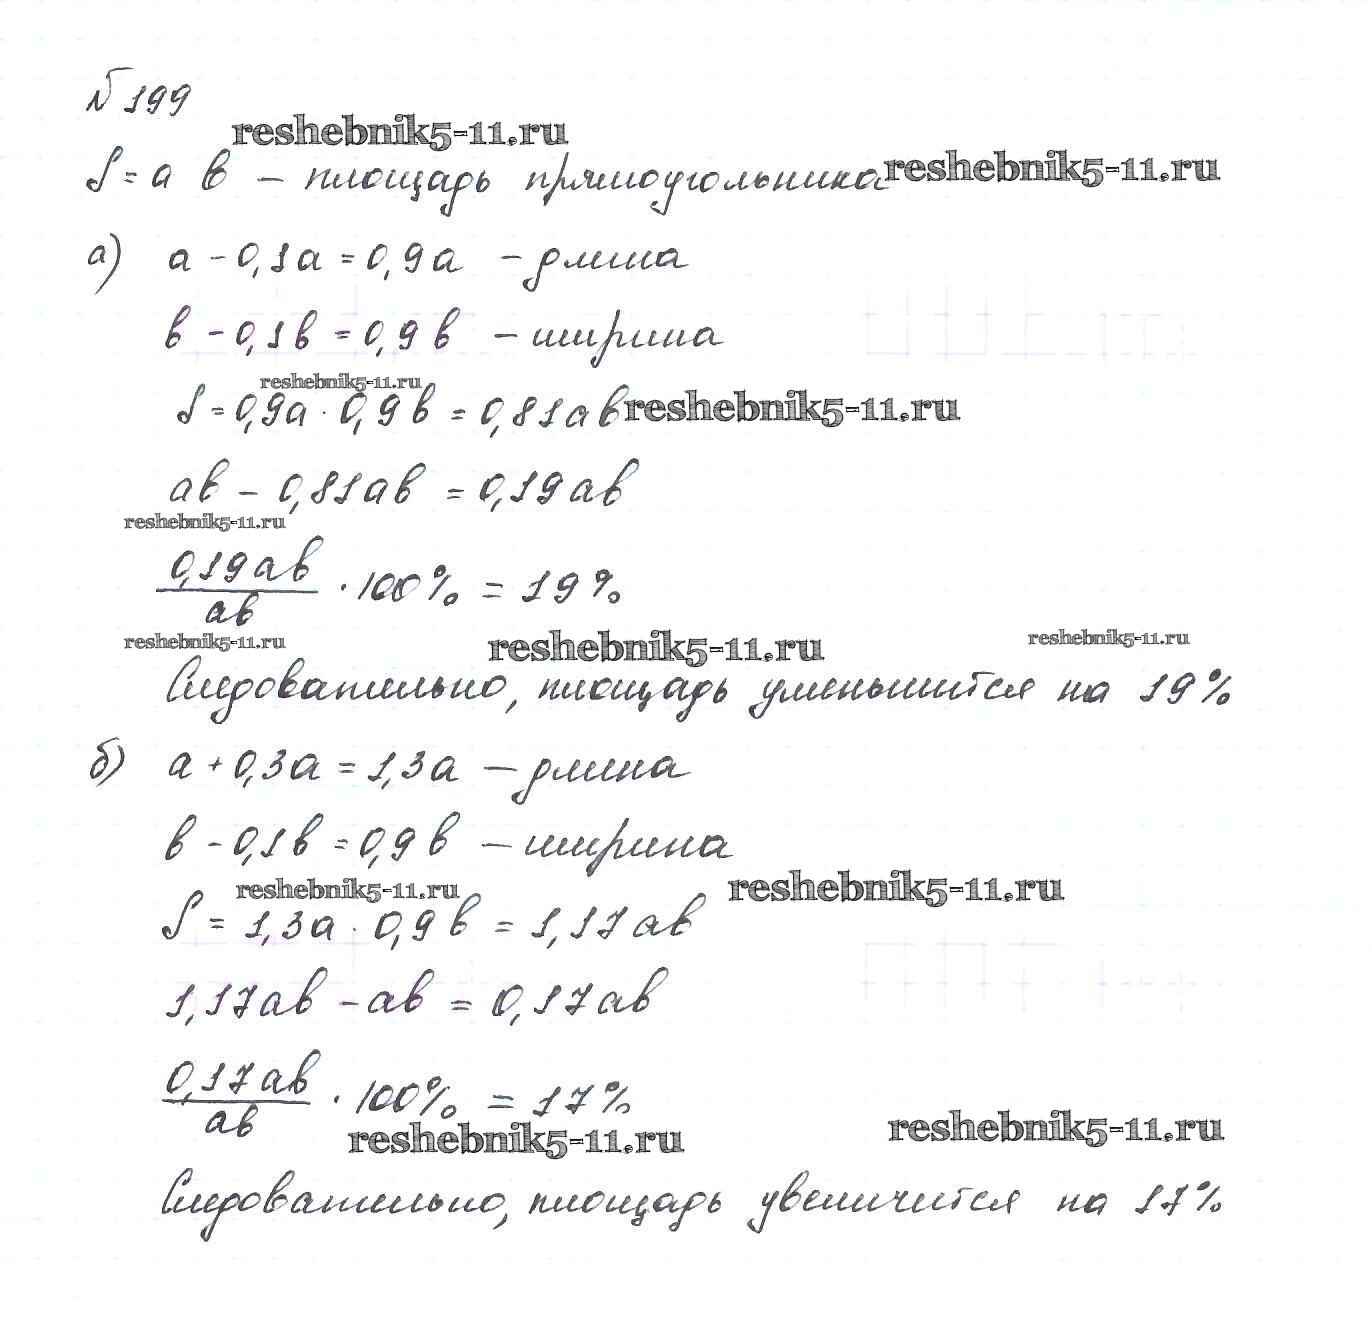 № 199
reshebnik5-11.ru
S = a b – площадь прямоугольника
reshebnik5-11.ru
а) a - 0,1a = 0,9a – длина
b - 0,1b = 0,9b – ширина
reshebnik5-11.ru
S = 0,9a · 0,9b = 0,81ab
reshebnik5-11.ru
ab - 0,81ab = 0,19ab
reshebnik5-11.ru
0,19ab/ab · 100% = 19%
reshebnik5-11.ru reshebnik5-11.ru reshebnik5-11.ru
Следовательно, площадь уменьшится на 19%
б) a + 0,3a = 1,3a – длина
b - 0,1b = 0,9b – ширина
reshebnik5-11.ru reshebnik5-11.ru
S = 1,3a · 0,9b = 1,17ab
1,17ab - ab = 0,17ab
0,17ab/ab · 100% = 17%
reshebnik5-11.ru reshebnik5-11.ru
Следовательно, площадь увеличится на 17%